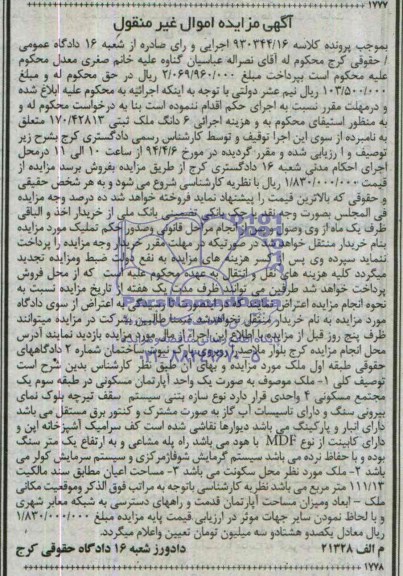 ۱۷۷۷
آگهی مزایده اموال غیر منقول
بموجب پرونده کلاسه ۹۳۰۳۴۴/۱۶ اجرایی و رای صادره از شعبه ۱۶ دادگاه عمومی
/ حقوقی کرج محکوم له آقای نصراله عباسیان گناوه علیه خانم صغری معدل محکوم
علیه محکوم است بپرداخت مبلغ ۲/۰۶۹/۹۶۰/۰۰۰ ریال در حق محکوم له و مبلغ
۱۰۳/۵۰۰/۰۰۰ ریال نیم عشر دولتی با توجه به اینکه اجرائیه به محکوم علیه ابلاغ شده
و درمهلت مقرر نسبت به اجرای حکم اقدام ننموده است بنا به درخواست محکوم له و
به منظور استیفای محکوم به و هزینه اجرائی ۶ دانگ ملک ثبتی ۱۷۰/۴۲۸۱۳ متعلق
به نامبرده از سوی این اجرا توقیف و توسط کارشناس رسمی دادگستری کرج بشرح زیر
توصیف و ارزیابی شده و مقرر گردیده در مورخ ۹۴/۴/۶ از ساعت ۱۰ الی ۱۱ درمحل
اجرای احکام مدنی شعبه ۱۶ دادگستری کرج از طریق مزایده بفروش برسد مزایده از
قیمت ۱/۸۳۰/۰۰۰/۰۰۰ ریال با نظریه کارشناسی شروع می شود و به هر شخص حقیقی
و حقوقی که بالاترین قیمت را پیشنهاد نماید فروخته خواهد شد ده درصد وجه مزایده
فی المجلس بصورت وجه نقد یا چک بانکی تضمینی بانک ملی از خریدار اخذ و الباقی
ظرف یک ماه از وی وصول و پس از انجام مراحل قانونی وصدور حکم تملیک مورد مزایده
بنام خریدار منتقل خواهد شد در صورتیکه در مهلت مقرر خریدار وجه مزایده را پرداخت
ننماید سپرده وی پس از کسر هزینه های مزایده به نفع دولت ضبط ومزایده تجدید
میگردد کلیه هزینه های نقل و انتقال به عهده محکوم علیه است که از محل فروش
پرداخت خواهد شد طرفین می توانند ظرف مدت یک هفته از تاریخ مزایده نسبت به
نحوه انجام مزایده اعتراض نمایند به اعتراض از سوی دادگاه
مورد مزایده به نام خریدار منتقل نخواهد شد ضمنا طالبین شرکت در مزایده میتوانند
ظرف پنج روز قبل از مزایده با اطلاع این اجرا از مال مورد مزایده بازدید نمایند آدرس
محل انجام مزایده کرج بلوار ساختمان شماره ۲ دادگاههای
حقوقی طبقه اول ملک مورد مزایده و بهای آن طبق نظر کارشناس بدین شرح است
توصیف کلی ۱- ملک موصوف به صورت یک واحد آپارتمان مسکونی در طبقه سوم یک
مجتمع مسکونی ۴ واحدی قرار دارد نوع سازه بتنی سیستم سقف تیرچه بلوک نمای
بیرونی سنگ و دارای تاسیسات آب گاز به صورت مشترک و کنتور برق مستقل می باشد
دارای انبار و پارکینگ می باشد دیوارها نقاشی شده است کف سرامیک آشپزخانه اپن و
دارای کابینت از نوع MDF با هود می باشد راه پله مشاعی و به ارتفاع یک متر سنگ
بوده و با حفاظ نرده می باشد سیستم گرمایش شوفاژمرکزی و سیستم سرمایش کولر می
باشد ۲- ملک مورد نظر محل سکونت می باشد ۳- مساحت اعیان مطابق سند مالکیت
۱۱۱/۱۳ متر مربع می باشد نظریه کارشناسی باتوجه به مراتب فوق الذکر وموقعیت مکانی
ملک - ابعاد ومیزان مساحت آپارتمان قدمت و راههای دسترسی به شبکه معابر شهری
و با لحاظ نمودن سایر جهات موثر در ارزیابی.قیمت پایه مزایده مبلغ ۱/۸۳۰/۰۰۰/۰۰۰
ریال معادل یکصدو هشتادو سه میلیون تومان تعیین واعلام میگردد.
م الف ۲۱۳۲۸ دادورز شعبه ۱۶ دادگاه حقوقی کرج
۱۷۷۸